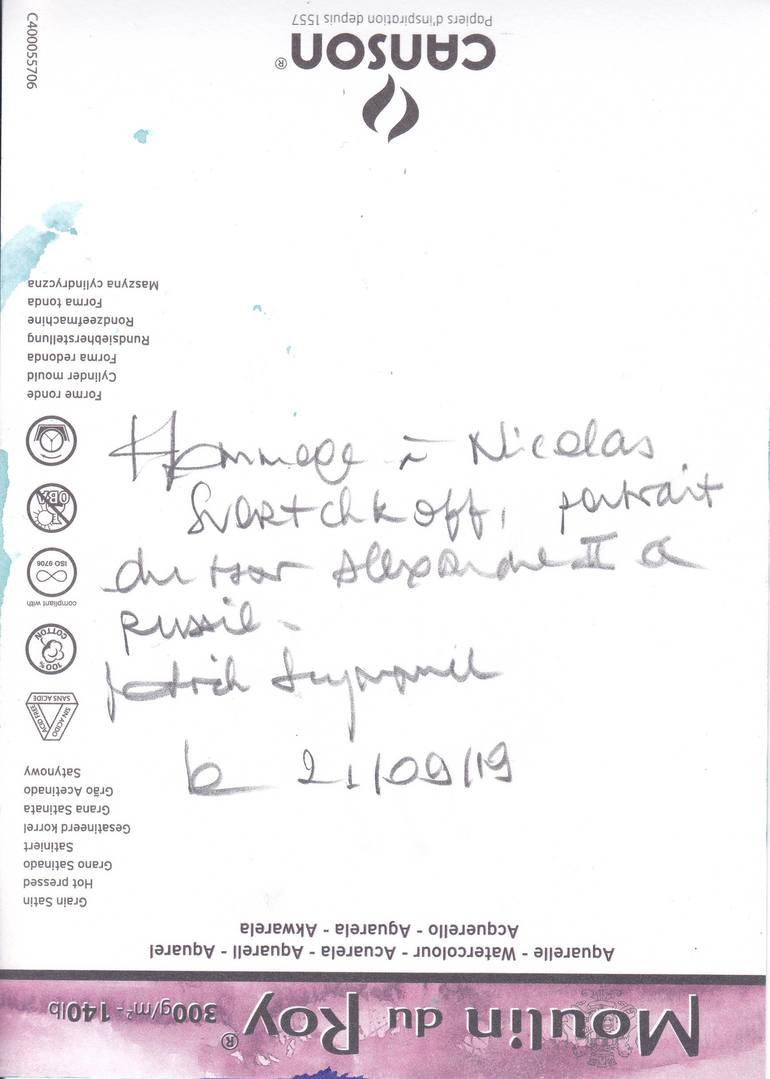 Hommage à Nicolas
Svertchkoff, portrait
du tsar Alexandre II de
Russie.
Patrick
le 21/09/19
Moulin du Roy® 300g/m² - 140lb
Aquarelle - Watercolour - Acuarela - Aquarell - Aquarel
Acquerello - Aguarela - Akwarela
Grain Satin
Hot pressed
Grano Satinado
Satiniert
Gesatineerd korrel
Grana Satinata
Grão Acetinado
Satynowy
SIN ACIDO
ACID FREE
SANS ACIDE
100%
COTTON
compliant with
ISO 9706
OBA
Forme ronde
Cylinder mould
Forma redonda
Rundsiebherstellung
Rondzeefmachine
Forma tonda
Maszyna cylindryczna
CANSON®
Papiers d'inspiration depuis 1557
C400055706